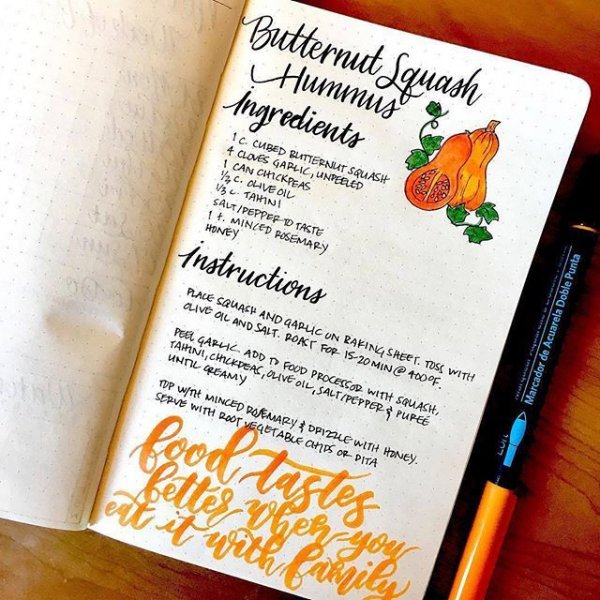 Butternut Squash
Hummus
Ingredients
1 C. CUBED BUTTERNUT SQUASH
4 CLOVES GARLIC, UNPEELED
1 CAN CHICKPEAS
1/2 C. OLIVE OIL
1/3 C. TAHINI
SALT/PEPPER TO TASTE
1 t. MINCED ROSEMARY
HONEY
Instructions
PLACE SQUASH AND GARLIC ON BAKING SHEET. TOSS WITH
OLIVE OIL AND SALT. ROAST FOR 15-20 MIN @ 400°F.
PEEL GARLIC. ADD TO FOOD PROCESSOR WITH SQUASH,
TAHINI, CHICKPEAS, OLIVE OIL, SALT/PEPPER & PUREÉ
UNTIL CREAMY
TOP W/TH MINCED ROSEMARY & DRIZZLE WITH HONEY.
SERVE WITH ROOT VEGETABLE CHIPS OR PITA
food tastes
better when you
eat it with family
Marcador de Acuarela Doble Punta